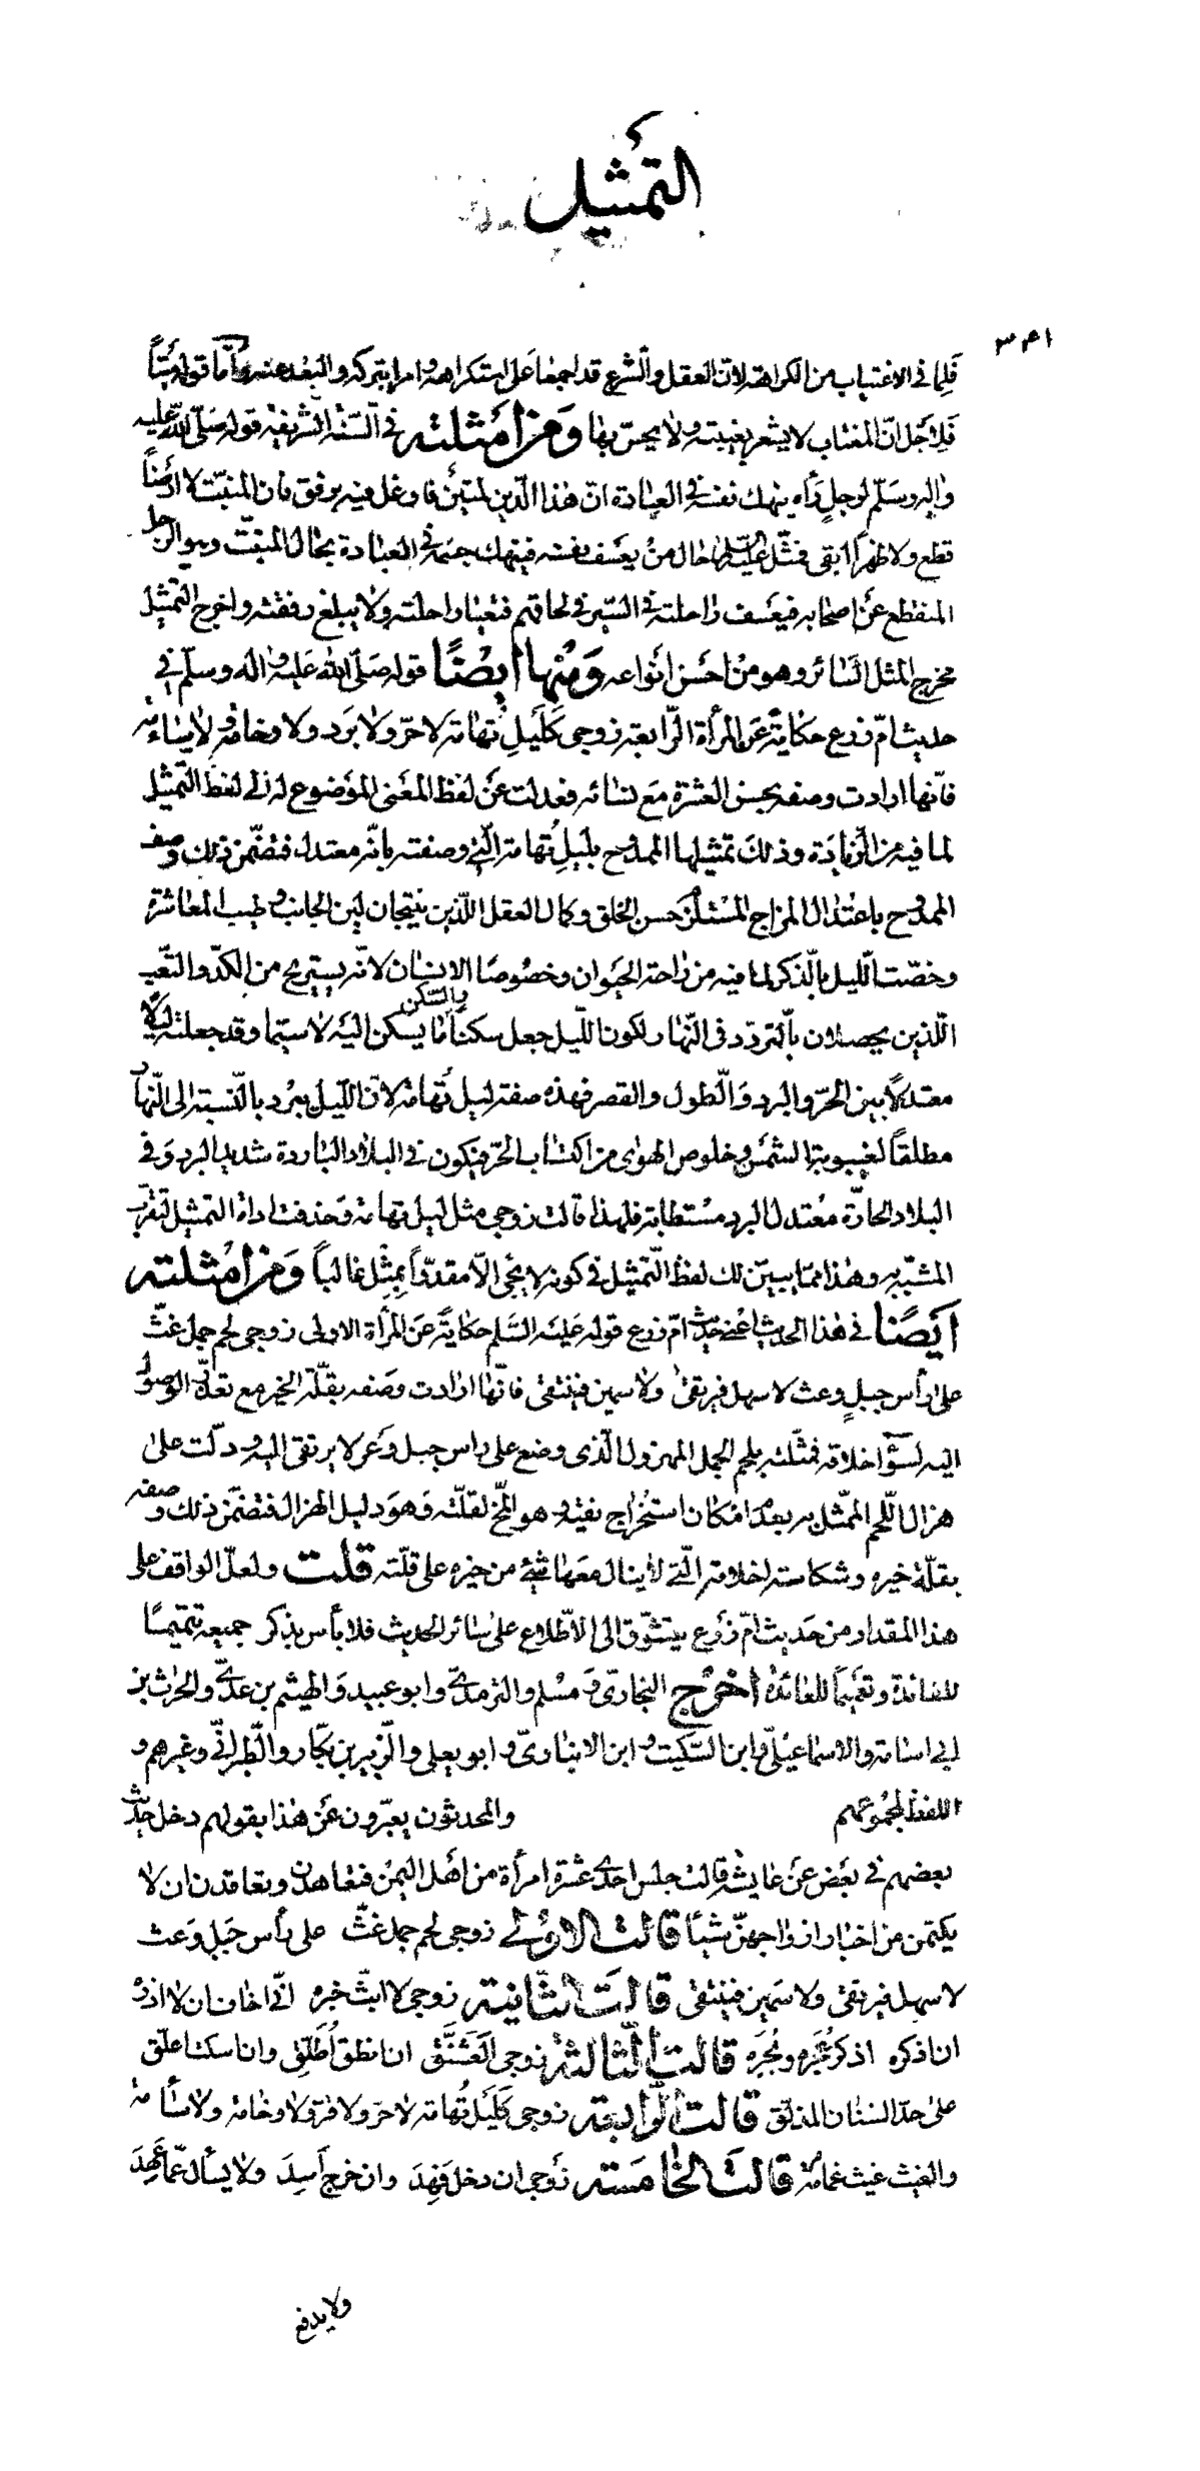 التمثيل
٣٤١
فلما في الاغتياب من الكراهة لان العقل والشرع قد اجمعا على استكراهه وامرا بتركه والبعد عنه واما قوله ميتاً
فلاجل انّ المغتاب لا يشعر بغيبته ولا يحسّ بها ومن امثلته في السّنة الشريفة قوله صلّى اللّه عليه
واله وسلّم لرجلٍ رآه ينهك نفسه في العبادة انّ هذا الدّين لمتين فاوغل فيه برفق فان المنبتّ لا ارضاً
قطع ولا ظهراً ابقى فمثّل عليه السلم حال من يعسف نفسه فينهك جسمه في العبادة بحال المنبتّ وهو الرجل
المنقطع عن اصحابه فيعسف راحلته في السّير في لحاقهم فتعيا راحلته ولا يبلغ رفقته واخرج التمثيل
مخرج المثل السّائر وهو من احسن انواعه ومنها ايضاً قوله صلّى اللّه عليه واله وسلّم في
حديث امّ زرع حكاية عن المرأة الرّابعة زوجي كليلِ تهامة لا حرّ ولا برد ولا وخامة ولا سئامة
فانّها ارادت وصفه بحسن العشرة مع نسائه فعدلت عن لفظ المعنى الموضوع له الى لفظ التّمثيل
لما فيه من الزّيادة وذلك تمثيلها الممدوح بليلِ تهامة الّتي وصفته بانّه معتدل فتضمّن ذلك وصف
الممدوح باعتدال المزاج المستلزم حسن الخلق وكمال العقل اللّذين ينتجان لين الجانب وطيب المعاشرة
وخصّت اللّيل بالذّكر لما فيه من راحة الحيوان وخصوصاً الانسان لانّه يستريح من الكدّ والتّعب
اللّذين يحصلان بالتّردّد في النّهار ولكون اللّيل جعل سكناً والسكن ما يسكن اليه لا سيّما وقد جعلته ليلاً
معتدلاً بين الحرّ والبرد والطول والقصر فهذه صفة ليل تهامة لانّ اللّيل يبرد بالنّسبة الى النّهار
مطلقاً لغيبوبة الشّمس وخلوص الهوى من اكتساب الحرّ فيكون في البلاد الباردة شديد البرد وفي
البلاد الحارّة معتدل البرد مستطابة فلهذا قالت زوجي مثل ليل تهامة وحذفت اداة التمثيل لتقرب
المشبّه به وهذا ممّا يبيّن لك لفظ التّمثيل في كونه لا يجئ الّا مقدّراً بمثل غالباً ومن امثلته
ايضاً في هذا الحديث اعني حديث امّ زرع قوله عليه السّلم حكاية عن المرأة الاولى زوجي لحم جمل غثّ
على رأس جبلٍ وعث لا سهل فيرتقى ولا سمين فينتقى فانّها ارادت وصفه بقلّة الخير مع تعذّر الوصول
اليه لسوء اخلاقه فمثّلته بلحم الجمل المهزول الّذي وضع على راس جبل وعر لا يرتقى اليه ودلّت على
هزال اللّحم الممثّل به ببعد امكان استخراج نقيه وهو المخّ لقلّته وهو دليل الهزال فتضمّن ذلك وصفه
بقلّة خيره وشكاسة اخلاقه الّتي لا ينال معها شئ من خيره على قلّته قلت ولعلّ الواقف على
هذا المقدار من حديث امّ زرع يتشوّق الى الاطّلاع على سائر الحديث فلا بأس بذكر جميعه تتميماً
للفائدة وتعميماً للعائدة اخرج البخاريّ ومسلم والترمذيّ وابو عبيد والهيثم بن عديّ والحرث بن
ابي اسامة والاسماعيليّ وابن السّكيت وابن الانباريّ وابو يعلى والزّبير بن بكّار والطّبرانيّ وغيرهم و
اللفظ لمجموعهم والمحدثون يعبّرون عن هذا بقولهم دخل حديث
بعضهم في بعض عن عايشة قالت جلس احدى عشرة امرأة من اهل اليمن فتعاهدن وتعاقدن ان لا
يكتمن من اخبار ازواجهنّ شيئا قالت الاولى زوجي لحم جمل غثّ على رأس جبل وعث
لا سهل فيرتقى ولا سمين فينتقى قالت الثّانية زوجي لا ابثّ خبره انّي اخاف ان لا اذره
ان اذكره اذكر عجره وبجره قالت الثالثة زوجي العشنّق ان انطق اطلّق وان اسكت اعلّق
على حدّ السنان المذلّق قالت الرّابعة زوجي كليل تهامة لا حرّ ولا قرّ ولا وخامة ولا سأمة
والغيث غيث غمامة قالت الخامسة زوجي ان دخل فهد وان خرج اسد ولا يسأل عمّا عهد
ولا يرفع